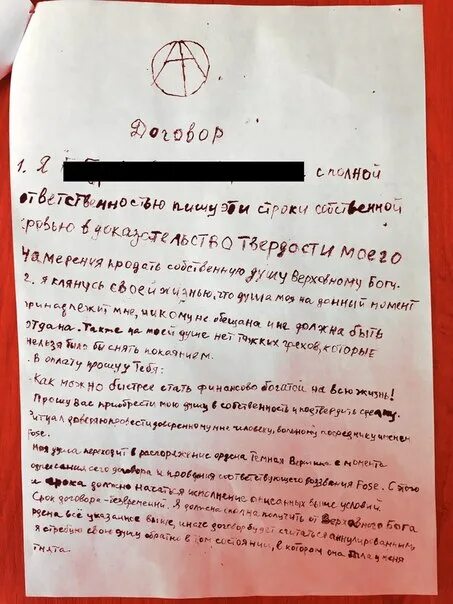 Договор
1. Я с полной
ответственностью пишу эти строки собственной
кровью в доказательство твердости моего
намерения продать собственную душу Верховному Богу.
2. Я клянусь своей жизнью, что душа моя на данный момент
принадлежит мне, никому не обещана и не должна быть
отдана. Также на моей душе нет тяжких грехов, которые
нельзя было бы снять покаянием.
В оплату прошу у Тебя:
- Как можно быстрее стать финансово богатой на всю жизнь!
Прошу Вас приобрести мою душу в собственность и подтвердить сделку.
Ритуал доверяю провести доверенному мне человеку, вольному посреднику именем
Fose.
Моя душа переходит в распоряжение ордена Темная Вершина с момента
подписания сего договора и проведения соответствующего воззвания Fose. С этого
и срока должно начаться исполнение описанных выше условий.
Срок договора - Я должна сполна получить от Верховного Бога
ордена всё указанное выше, иначе договор будет считаться аннулированным,
Я требую свою душу обратно в том состоянии, в котором она была у меня